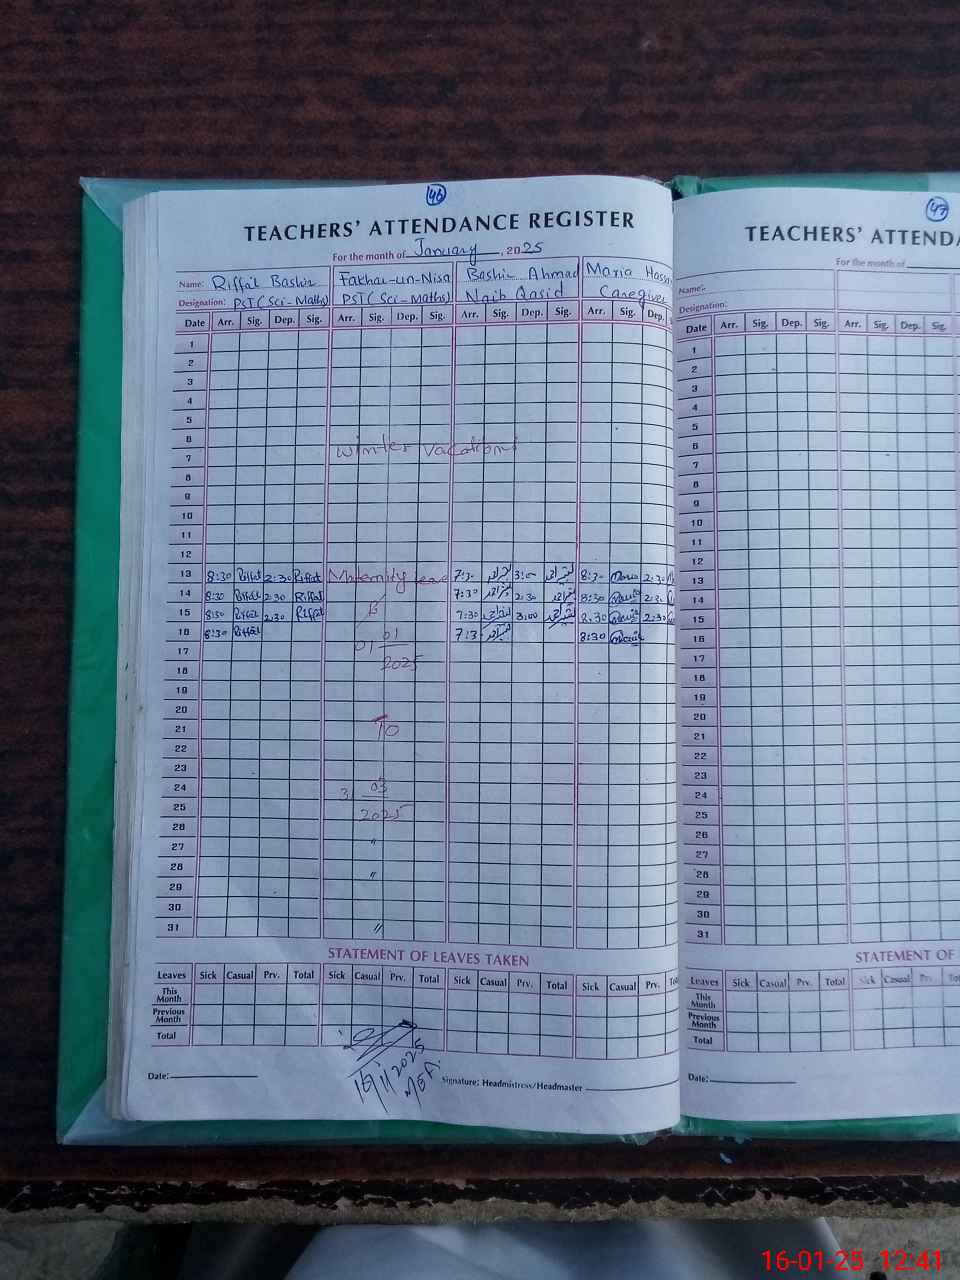 46
TEACHERS' ATTENDANCE REGISTER
For the month of January, 2025
Name: Riffat Bashir Fakhar-un-Nisa Bashir Ahmad Maria Hassa
Designation: PST (Sci-Maths) PST (Sci-Maths) Naib Qasid Caregiver
Date Arr. Sig. Dep. Sig. Arr. Sig. Dep. Sig. Arr. Sig. Dep. Sig. Arr. Sig. Dep.
1
2
3
4
5
6
winter vacations
7
8
9
10
11
12
13 8:30 Riffat 2:30 Riffat Maternity leave 7:30 3:00 8:30 Maria 2:30
14 8:30 Riffat 2:30 Riffat 7:30 2:30 8:30 Maria 2:30
15 8:30 Riffat 2:30 Riffat 7:30 3:00 8:30 Maria 2:30
16 8:30 Riffat 01 7:3 8:30 Maria
17 01
18 2025
19
20
21 To
22
23
24 31 03
25 2025
26
27 "
28 "
29
30
31 "
STATEMENT OF LEAVES TAKEN
Leaves Sick Casual Prv. Total Sick Casual Prv. Total Sick Casual Prv. Total Sick Casual Prv.
This Month
Previous Month
Total
16/1/2025
MEA.
Date: Signature: Headmistress/Headmaster
47
TEACHERS' ATTENDA
For the month of
Name:-
Designation:
Date Arr. Sig. Dep. Sig. Arr. Sig. Dep. Sig.
1
2
3
4
5
6
7
8
9
10
11
12
13
14
15
16
17
18
19
20
21
22
23
24
25
26
27
28
29
30
31
STATEMENT OF
Leaves Sick Casual Prv. Total Sick Casual Prv.
This Month
Previous Month
Total
Date:
16-01-25 12:41